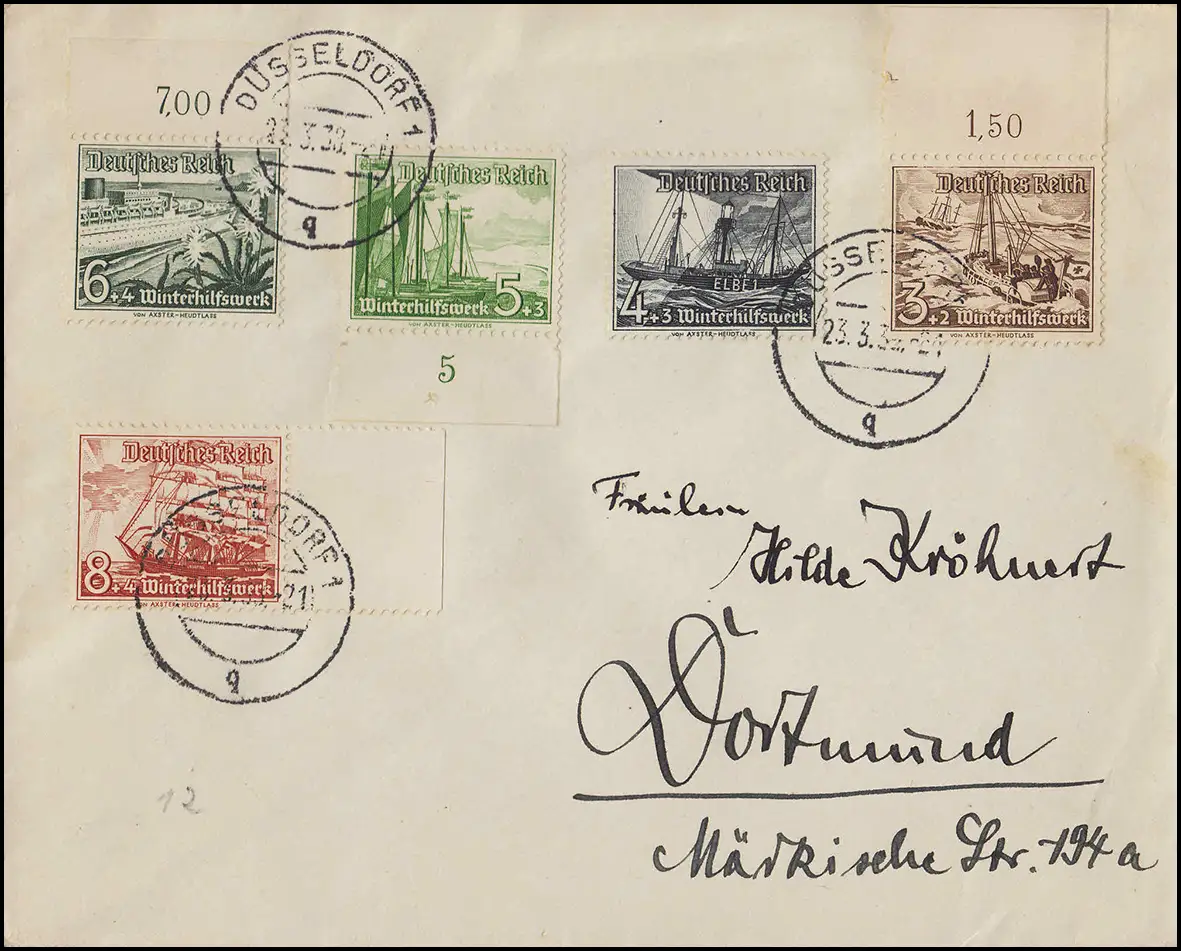 7,00
DÜSSELDORF 1
23.3.38.-21
q
1,50
Deutsches Reich
6+4 Winterhilfswerk
VON AXSTER-HEUDTLASS
Deutsches Reich
Winterhilfswerk 5+3
VON AXSTER-HEUDTLASS
5
Deutsches Reich
ELBE 1
4+3 Winterhilfswerk
VON AXSTER-HEUDTLASS
Deutsches Reich
3+2 Winterhilfswerk
VON AXSTER-HEUDTLASS
DÜSSEL
23.3.38.-21
q
Deutsches Reich
8+4 Winterhilfswerk
VON AXSTER-HEUDTLASS
DÜSSELDORF 1
-21
q
Fräulein
Hilde Kröhnert
Dortmund
Märkische Str. 194a
12